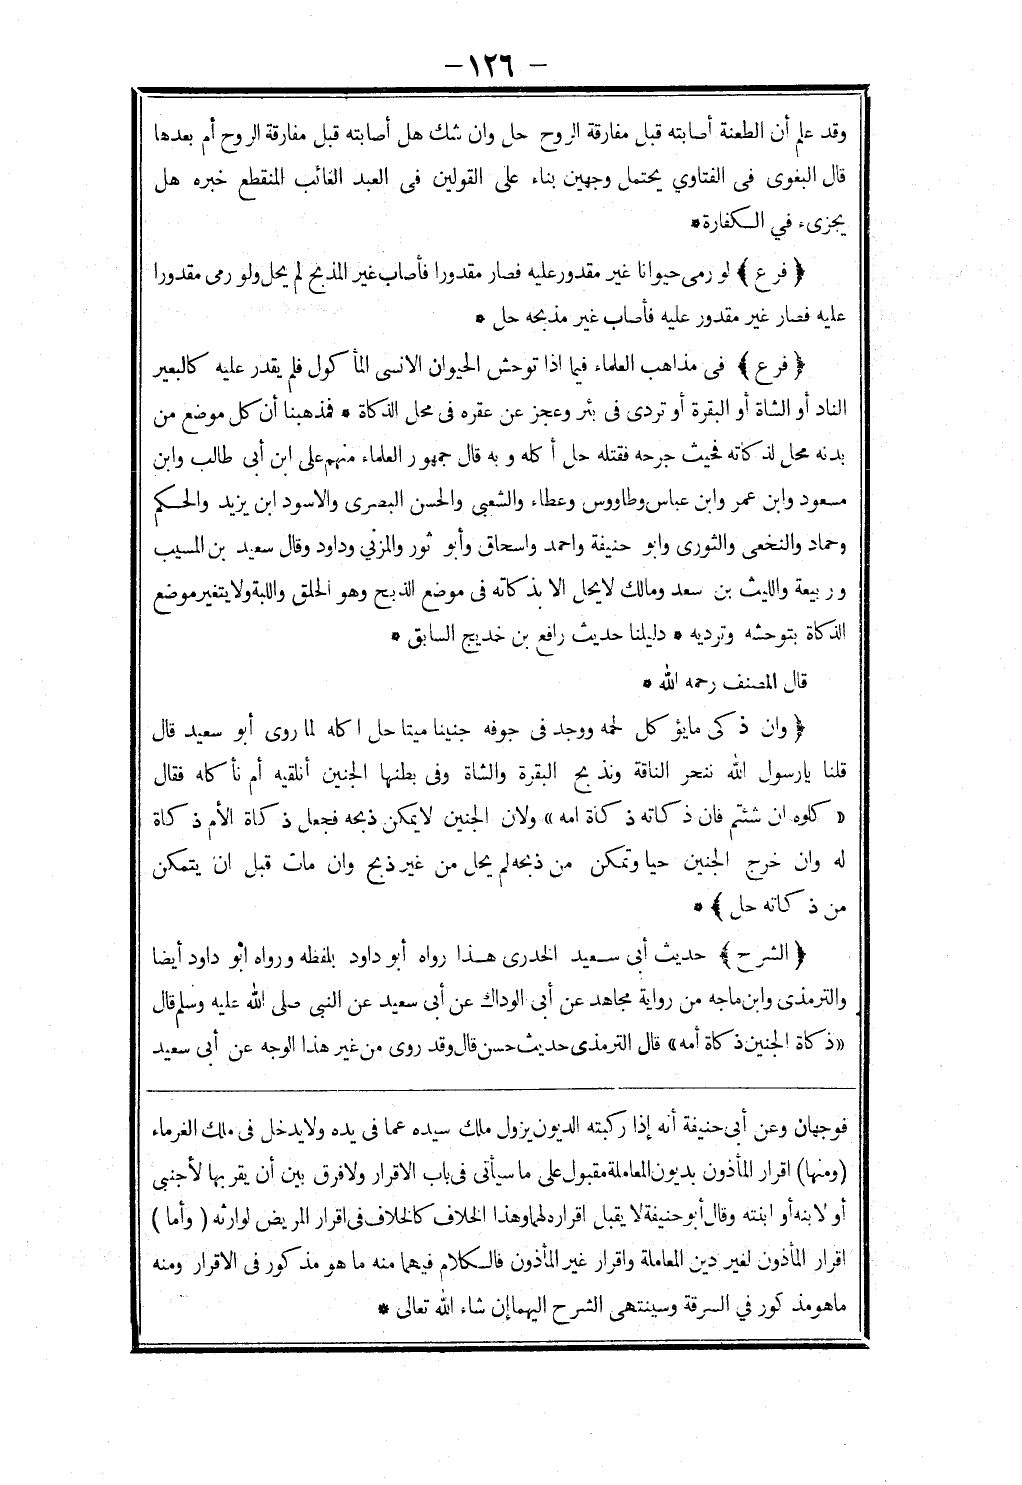 — ١٢٦ —
وقد علم أن الطعنة أصابته قبل مفارقة الروح حل وان شك هل أصابته قبل مفارقة الروح أم بعدها
قال البغوى فى الفتاوي يحتمل وجهين بناء على القولين فى العبد الغائب المنقطع خبره هل
يجزىء في الكفارة*
﴿ فرع ﴾ لو رمى حيوانا غير مقدور عليه فصار مقدورا فأصاب غير المذبح لم يحل ولو رمى مقدورا
عليه فصار غير مقدور عليه فأصاب غير مذبحه حل *
﴿ فرع ﴾ فى مذاهب العلماء فيما اذا توحش الحيوان الانسى المأكول فلم يقدر عليه كالبعير
الناد أو الشاة أو البقرة أو تردى فى بئر وعجز عن عقره فى محل الذكاة * فمذهبنا أن كل موضع من
بدنه محل لذكاته فحيث جرحه فقتله حل أكله وبه قال جمهور العلماء منهم على ابن أبى طالب وابن
مسعود وابن عمر وابن عباس وطاووس وعطاء والشعبي والحسن البصرى والاسود ابن يزيد والحكم
وحماد والنخعى والثورى وابو حنيفة واحمد واسحاق وأبو ثور والمزني وداود وقال سعيد بن المسيب
وربيعة والليث بن سعد ومالك لايحل الا بذكاته فى موضع الذبح وهو الحلق واللبة ولا يتغير موضع
الذكاة بتوحشه وترديه * دليلنا حديث رافع بن خديج السابق *
قال المصنف رحمه الله *
﴿ وان ذكى مايؤكل لحمه ووجد فى جوفه جنينا ميتا حل اكله لما روى أبو سعيد قال
قلنا يارسول الله ننحر الناقة ونذبح البقرة والشاة وفى بطنها الجنين أنلقيه أم نأكله فقال
« كلوه ان شئتم فان ذكاته ذكاة امه » ولان الجنين لايمكن ذبحه فجعل ذكاة الأم ذكاة
له وان خرج الجنين حيا وتمكن من ذبحه لم يحل من غير ذبح وان مات قبل ان يتمكن
من ذكاته حل ﴾ *
﴿ الشرح ﴾ حديث أبى سعيد الخدرى هذا رواه أبو داود بلفظه ورواه ابو داود أيضا
والترمذى وابن ماجه من رواية مجاهد عن أبى الوداك عن أبى سعيد عن النبى صلى الله عليه وسلم قال
«ذكاة الجنين ذكاة أمه» قال الترمذى حديث حسن قال وقد روى من غير هذا الوجه عن أبى سعيد
فوجهان وعن أبى حنيفة أنه إذا ركبته الديون يزول ملك سيده عما فى يده ولا يدخل فى ملك الغرماء
(ومنها) اقرار المأذون بديون المعاملة مقبول على ما سيأتى فى باب الاقرار ولا فرق بين أن يقر بها لأجنبى
أو لابنه أو ابنته وقال أبو حنيفة لا يقبل اقراره لهما وهذا الخلاف كالخلاف فى اقرار المريض لوارثه ( وأما )
اقرار المأذون لغير دين المعاملة واقرار غير المأذون فالكلام فيهما منه ما هو مذكور فى الاقرار ومنه
ماهو مذكور في السرقة وسينتهى الشرح اليهما إن شاء الله تعالى *